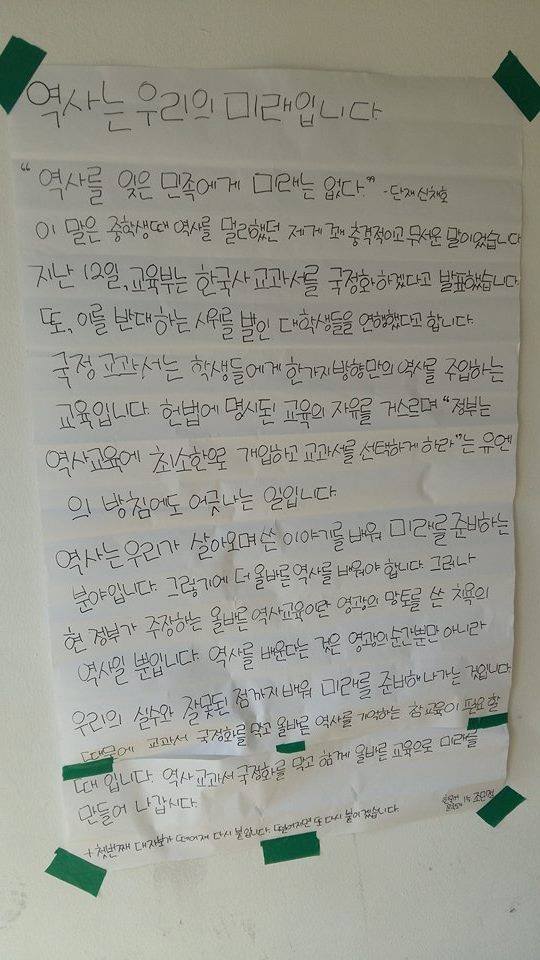 역사는 우리의 미래입니다
“역사를 잊은 민족에게 미래는 없다.” - 단재 신채호
이 말은 중학생때 역사를 멀리했던 제게 꽤 충격적이고 무서운 말이었습니다
지난 12일, 교육부는 한국사 교과서를 국정화하겠다고 발표했습니다.
또, 이를 반대하는 시위를 벌인 대학생들을 연행했다고 합니다.
국정 교과서는 학생들에게 한가지 방향만의 역사를 주입하는
교육입니다. 헌법에 명시된 교육의 자유를 거스르며 “정부는
역사교육에 최소한으로 개입하고 교과서를 선택하게 하라”는 유엔
의 방침에도 어긋나는 일입니다.
역사는 우리가 살아오며 쓴 이야기를 배워 미래를 준비하는
분야입니다. 그렇기에 더 올바른 역사를 배워야 합니다. 그러나
현 정부가 주장하는 올바른 역사교육이란 영광의 망토를 쓴 치욕의
역사일 뿐입니다. 역사를 배운다는 것은 영광의 순간뿐만 아니라
우리의 실수와 잘못된 점까지 배워 미래를 준비해 나가는 것입니다.
때문에 교과서 국정화를 막고 올바른 역사를 기억하는 참교육이 필요할
때 입니다. 역사 교과서 국정화를 막고 함께 올바른 교육으로 미래를
만들어 나갑시다.
1학년
+ 첫번째 대자보가 떼어져 다시 붙입니다. 떨어지면 또 다시 붙이겠습니다.